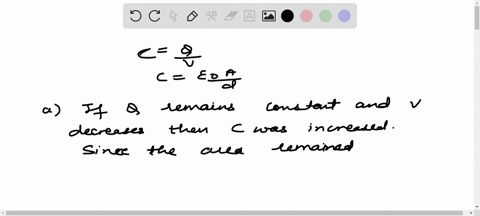 C = Q/V
C = ε0 A/d
a) If Q remains constant and V
decreases then C was increased.
Since the area remained